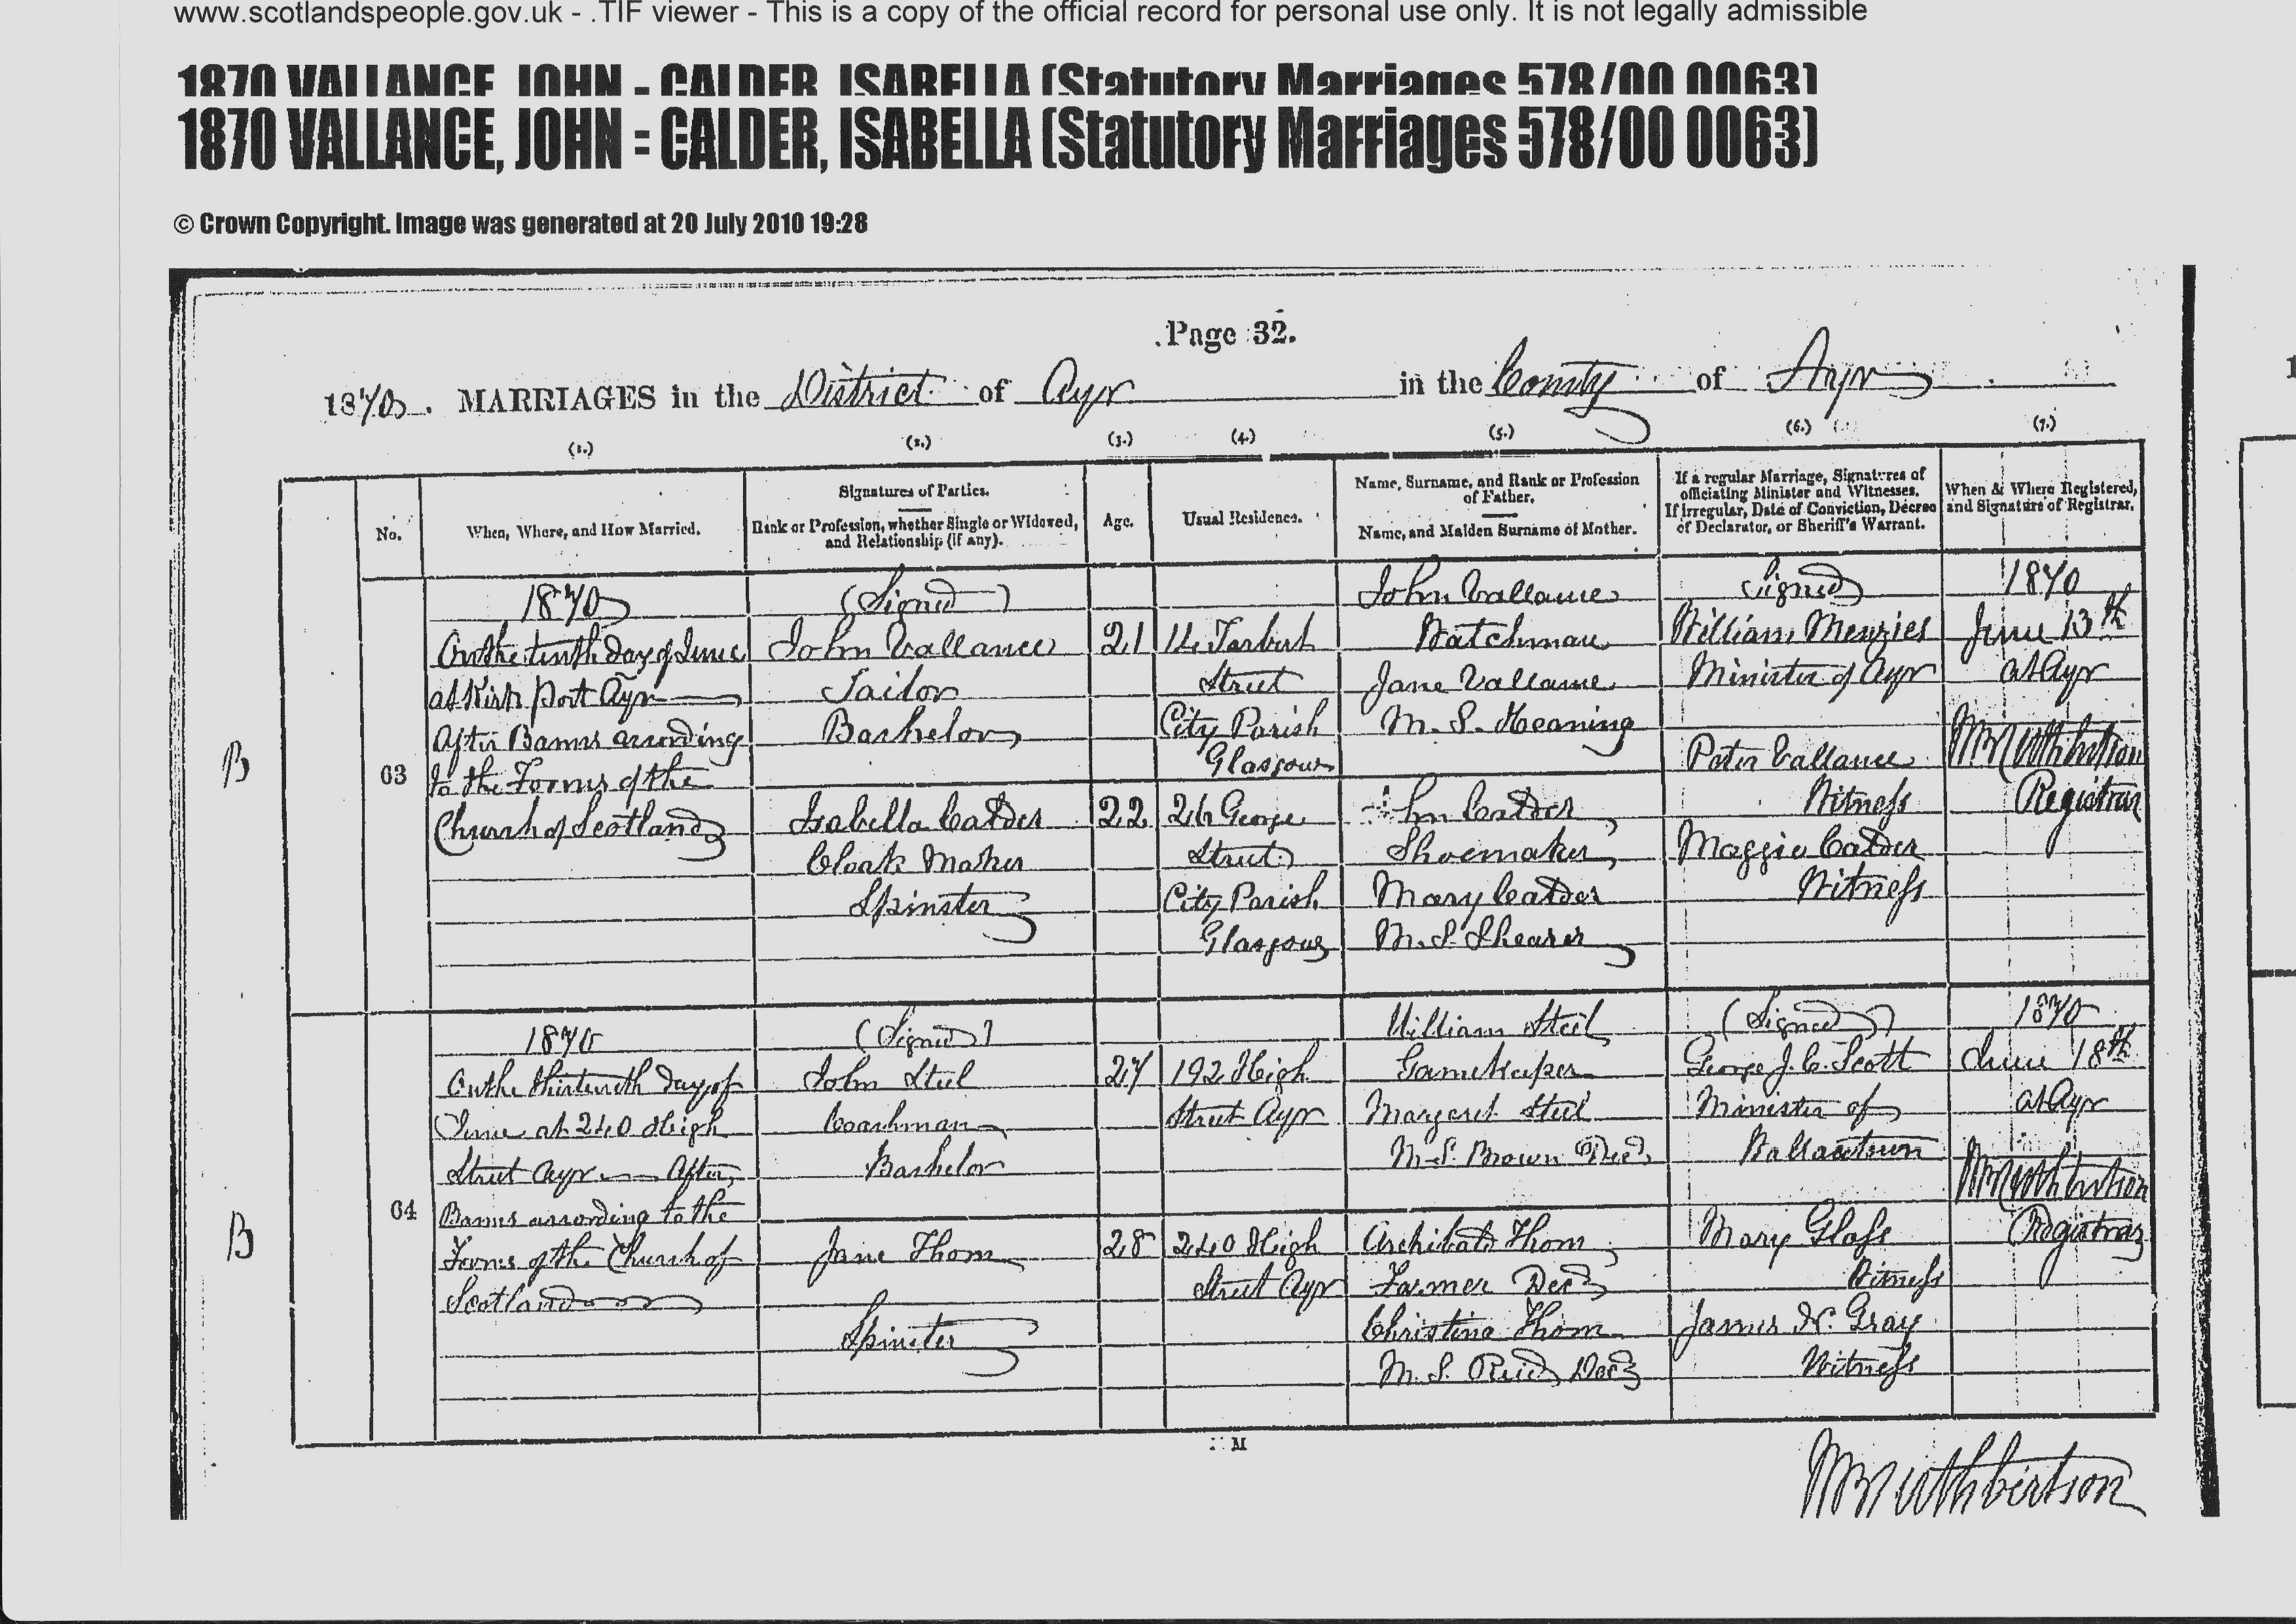 www.scotlandspeople.gov.uk - .TIF viewer - This is a copy of the official record for personal use only. It is not legally admissible
1870 VALLANCE, JOHN - CALDER, ISABELLA (Statutory Marriages 578/00 0063)
1870 VALLANCE, JOHN = CALDER, ISABELLA (Statutory Marriages 578/00 0063)
© Crown Copyright. Image was generated at 20 July 2010 19:28
Page 32.
1870. MARRIAGES in the District of Ayr in the County of Ayr
(1.) (2.) (3.) (4.) (5.) (6.) (7.)
No.
When, Where, and How Married.
Signatures of Parties.
Rank or Profession, whether Single or Widowed,
and Relationship (if any).
Age.
Usual Residence.
Name, Surname, and Rank or Profession
of Father.
Name, and Maiden Surname of Mother.
If a regular Marriage, Signatures of
officiating Minister and Witnesses.
If irregular, Date of Conviction, Decree
of Declarator, or Sheriff's Warrant.
When & Where Registered,
and Signature of Registrar.
B
63
1870
On the tenth day of June
at Kirk port Ayr
After Banns according
to the Forms of the
Church of Scotland
(Signed)
John Vallance
Tailor
Bachelor
Isabella Calder
Cloak Maker
Spinster
21
22
14 Tarbert
Street
City Parish
Glasgow
26 George
Street
City Parish
Glasgow
John Vallance
Watchman
Jane Vallance
M. S. Heaning
Calder
Shoemaker
Mary Calder
M. S. Shearer
(Signed)
William Menzies
Minister of Ayr
Peter Vallance
Witness
Maggie Calder
Witness
1870
June 13th
at Ayr
Cuthbertson
Registrar
B
64
1870
On the thirteenth day of
June at 240 High
Street Ayr After
Banns according to the
Forms of the Church of
Scotland
(Signed)
John Steel
Coachman
Bachelor
Jane Thom
Spinster
27
28
192 High
Street Ayr
240 High
Street Ayr
William Steel
Gamekeeper
Margaret Steel
M. S. Brown Decd
Archibald Thom
Farmer Decd
Christina Thom
M. S. Reid Decd
(Signed)
George J. C. Scott
Minister of
Wallacetown
Mary Glass
Witness
James N. Gray
Witness
1870
June 18th
at Ayr
Cuthbertson
Registrar
M
Cuthbertson